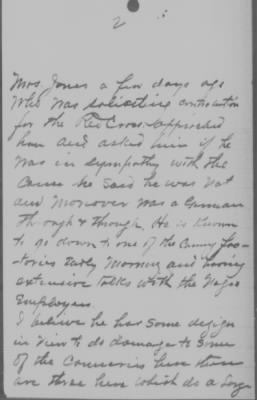 2
Mrs. Jones a few days ago
who was soliciting contribution
for the Red Cross approached
him and asked him if he
was in sympathy with the
cause he said he was not
and moreover was a German
through & through. He is known
to go down to one of the Canning Fac-
tories Early Morning and having
extensive talks with the Negro
Employees.
I believe he has some design
in view to do damage to some
of the Canneries here there
are three here which do a large